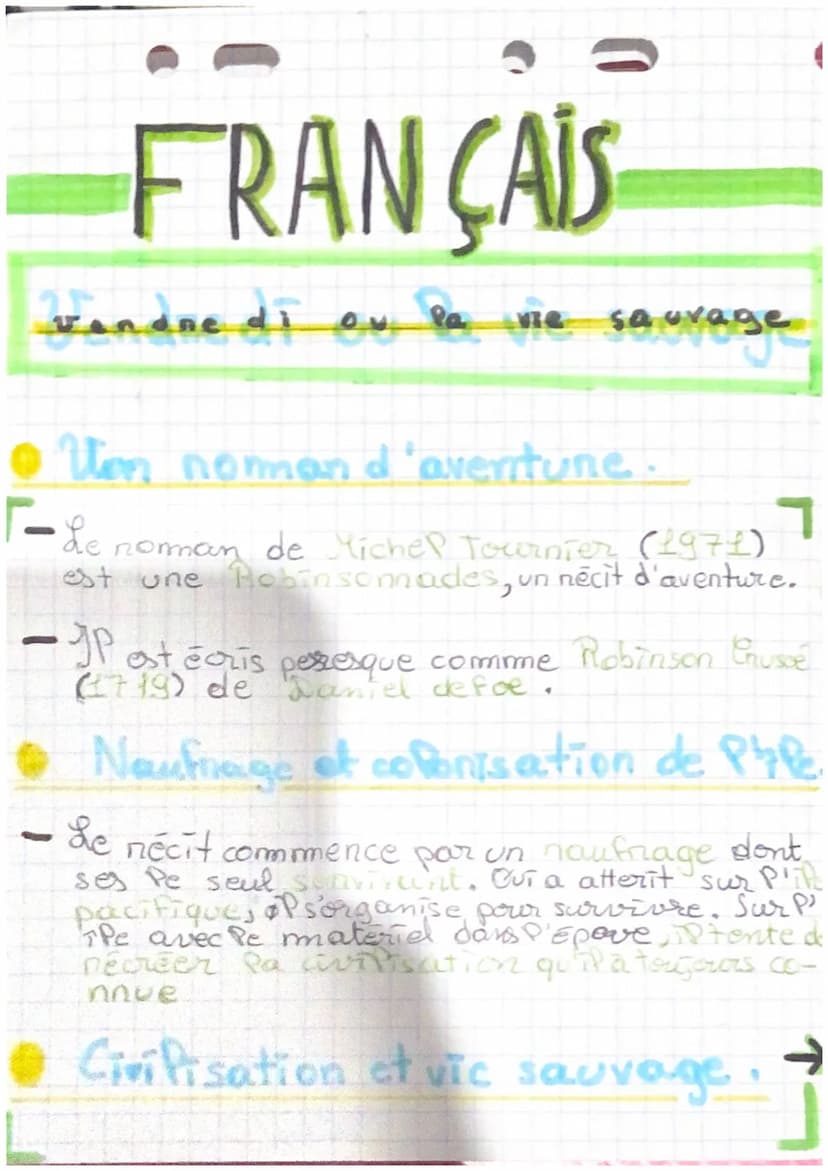 FRANÇAIS
Vendredi ou la vie sauvage
Un roman d'aventure.
- Le roman de Michel Tournier (1971)
est une Robinsonnades, un récit d'aventure.
- Il est écris presque comme Robinson Crusoé
(1719) de Daniel defoe.
Naufrage et colonisation de l'île.
- Le récit commence par un naufrage dont
ses le seul survivant. Qui a atterit sur l'île
pacifique, il s'organise pour survivre. Sur l'
île avec le materiel dans l'Épave, il tente de
récréer la civilisation qu'il a toujours co-
nnue
Civilisation et vie sauvage. →